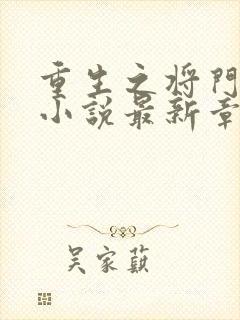 重生之将門
小説最新章
吴家蓺